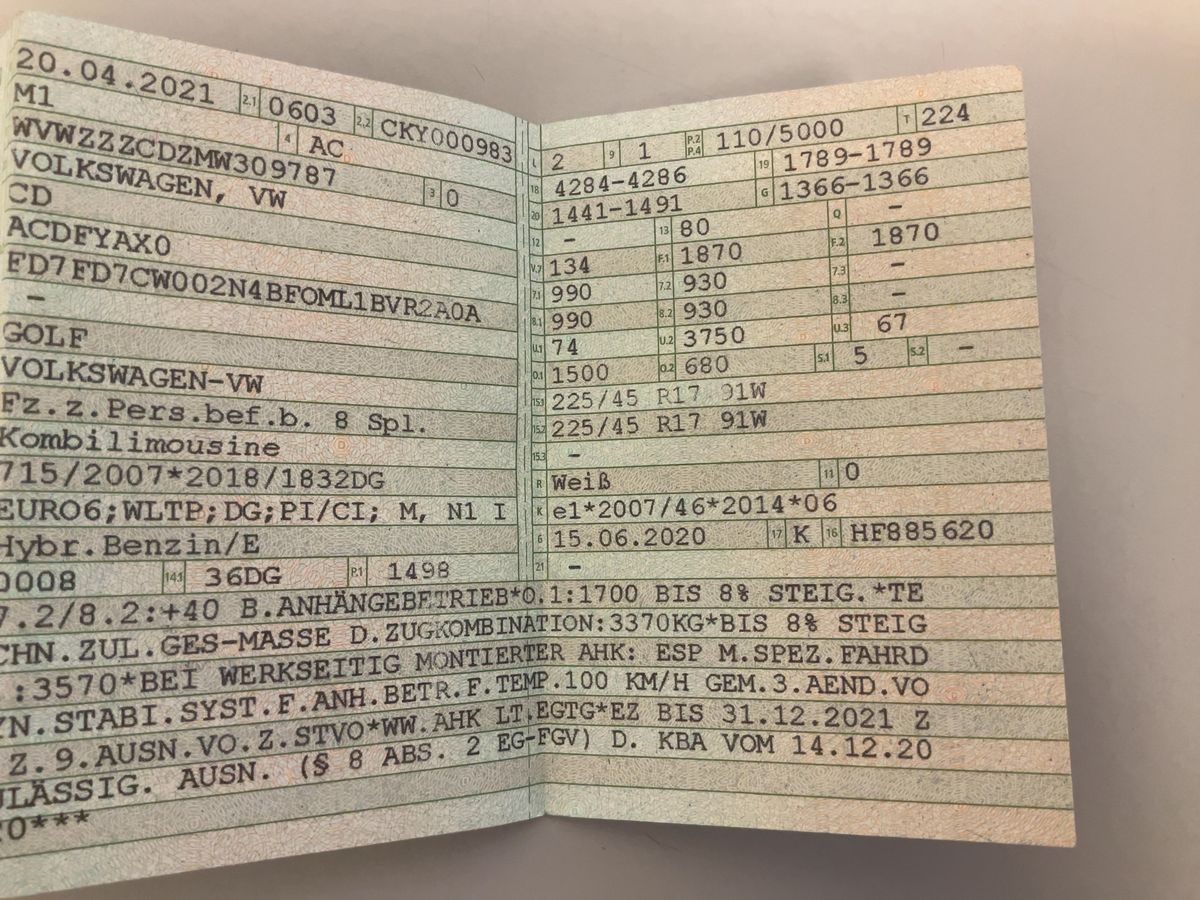 20.04.2021 2.1 0603 2.2 CKY000983
M1 4 AC
WVWZZZCDZMW309787 3 0
VOLKSWAGEN, VW
CD
ACDFYAX0
FD7FD7CW002N4BFOML1BVR2A0A
-
GOLF
VOLKSWAGEN-VW
Fz.z.Pers.bef.b. 8 Spl.
Kombilimousine
715/2007*2018/1832DG
EURO6;WLTP;DG;PI/CI; M, N1 I
Hybr.Benzin/E
0008 14.1 36DG P.1 1498
L 2 9 1 P.2 P.4 110/5000 T 224
18 4284-4286 19 1789-1789
20 1441-1491 G 1366-1366
12 - 13 80 Q -
V.7 134 F.1 1870 F.2 1870
7.1 990 7.2 930 7.3 -
8.1 990 8.2 930 8.3 -
U.1 74 U.2 3750 U.3 67
O.1 1500 O.2 680 S.1 5 S.2 -
15.1 225/45 R17 91W
15.2 225/45 R17 91W
15.3 -
R Weiß 11 0
K e1*2007/46*2014*06
6 15.06.2020 17 K 16 HF885620
21 -
7.2/8.2:+40 B.ANHÄNGEBETRIEB*O.1:1700 BIS 8% STEIG.*TE
CHN.ZUL.GES-MASSE D.ZUGKOMBINATION:3370KG*BIS 8% STEIG
.:3570*BEI WERKSEITIG MONTIERTER AHK: ESP M.SPEZ.FAHRD
YN.STABI.SYST.F.ANH.BETR.F.TEMP.100 KM/H GEM.3.AEND.VO
Z.9.AUSN.VO.Z.STVO*WW.AHK LT.EGTG*EZ BIS 31.12.2021 Z
ULÄSSIG. AUSN. (§ 8 ABS. 2 EG-FGV) D. KBA VOM 14.12.20
20***